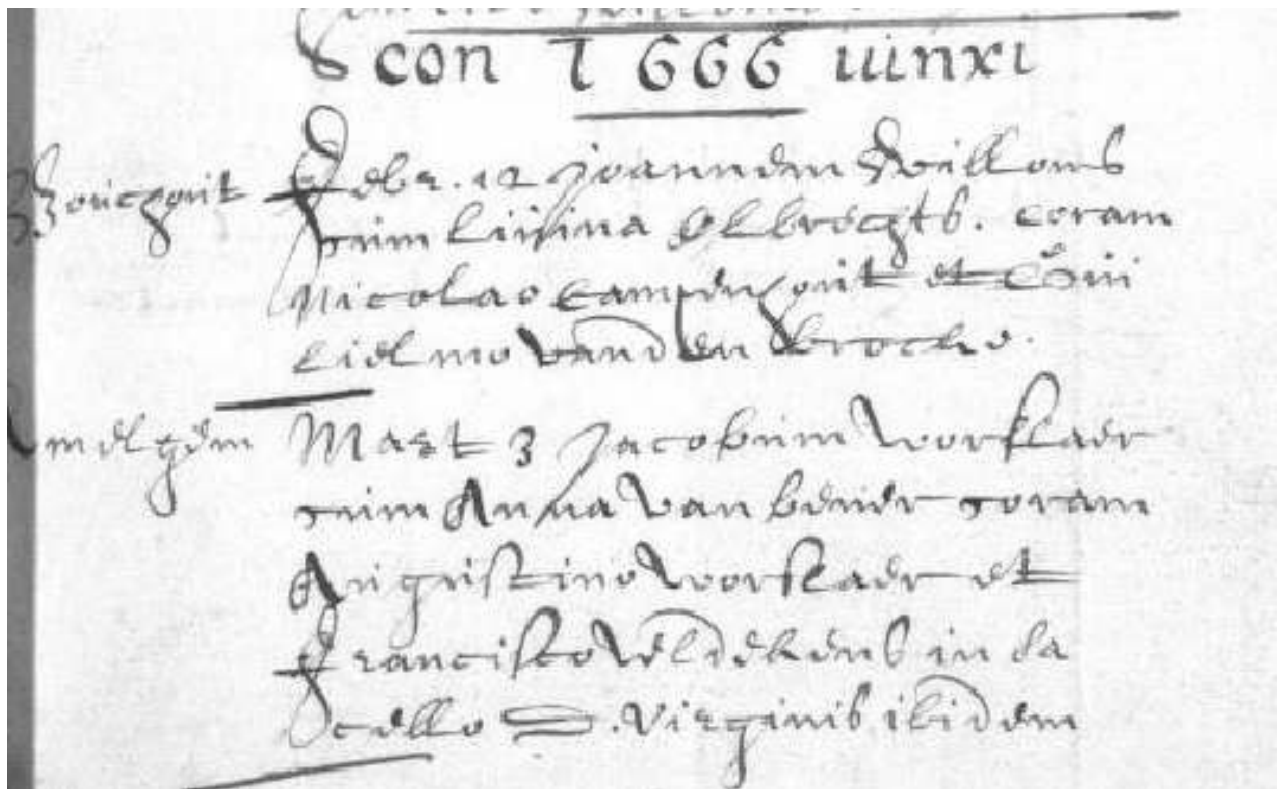 con 1666 iuinxi
Febr. 12 Joannem Willems
cum Livina Elbrechts. coram
Nicolao Campenhout et Gui
lielmo vanden Broecke.
Mart 3 Jacobum Worslaer
cum Anna van bever coram
Augustino Worslaer et
Francisco Veldekens in sa
cello B. Virginis ibidem